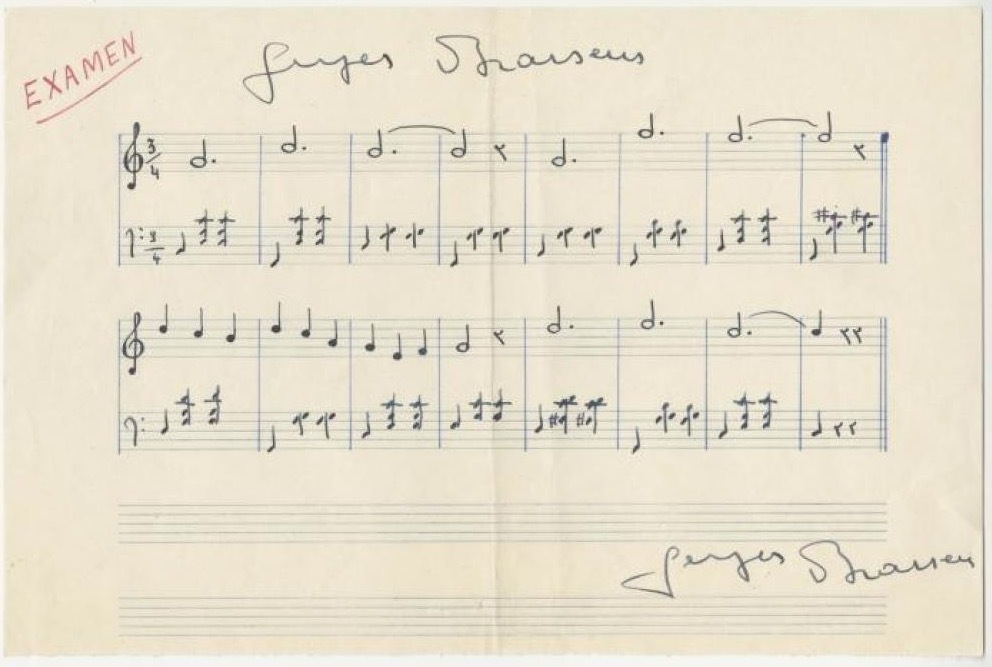 EXAMEN
Georges Brassens
3
4
3
4
Georges Brassens